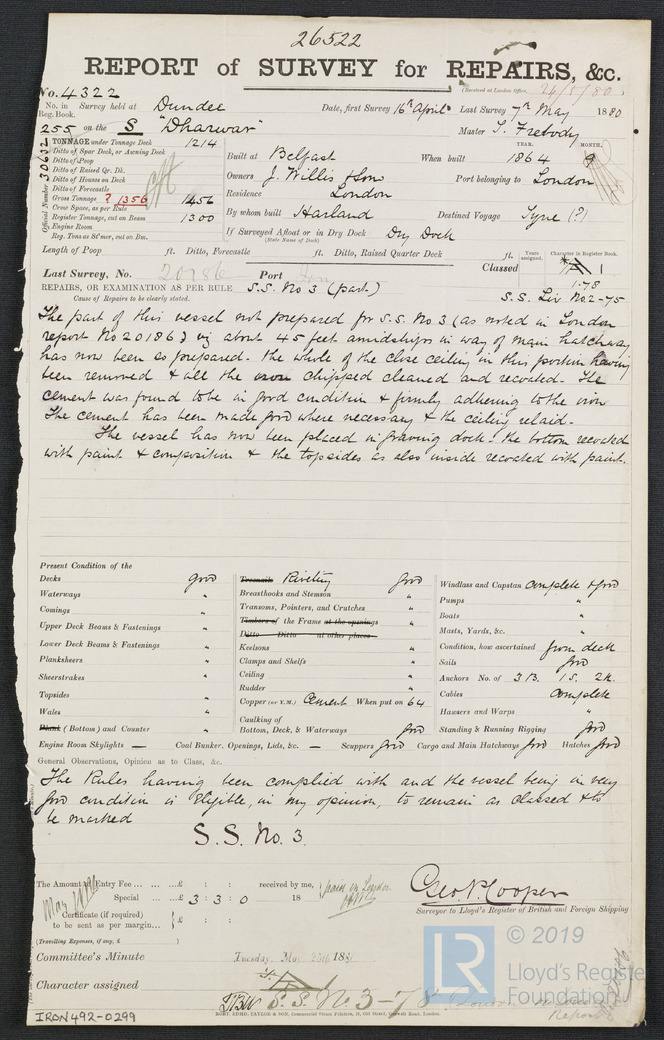 26522
REPORT of SURVEY for REPAIRS, &c.
(Received at London Office, 24/5/80)
No. 4322
No. in Reg. Book. Survey held at Dundee Date, first Survey 16th April Last Survey 7th May 1880
255 on the S "Dharwar" Master S. Freebody
Official Number 30632
TONNAGE under Tonnage Deck 1214
Ditto of Spar Deck, or Awning Deck
Ditto of Poop
Ditto of Raised Qr. Dk.
Ditto of Houses on Deck
Ditto of Forecastle
Gross Tonnage ? 1356 1456
Crew Space, as per Rule
Register Tonnage, cut on Beam 1300
Engine Room
Reg. Tons as St'mer, cut on Bm.
Built at Belfast When built YEAR. 1864 MONTH. 9
Owners J. Willis & Son Port belonging to London
Residence London
By whom built Harland Destined Voyage Tyne (?)
If Surveyed Afloat or in Dry Dock Dry Dock
(State Name of Dock)
Length of Poop ft. Ditto, Forecastle ft. Ditto, Raised Quarter Deck ft.
Years assigned. Character in Register Book.
Last Survey, No. 20186 Port Lon Classed 1
1.78
REPAIRS, OR EXAMINATION AS PER RULE S.S. No 3 (part.)
S.S. Liv No2-75
Cause of Repairs to be clearly stated.
The part of this vessel not prepared for S.S. No 3 (as noted in London
report No 20186) viz about 45 feet amidships in way of main hatchway
has now been so prepared - the whole of the close ceiling in this portion having
been removed & all the iron chipped cleaned and recoated. The
cement was found to be in good condition & firmly adhering to the iron
The cement has been made good where necessary & the ceiling relaid.
The vessel has now been placed in graving dock - the bottom recoated
with paint & composition & the topsides as also inside recoated with paint.
Present Condition of the
Decks good
Waterways "
Comings "
Upper Deck Beams & Fastenings "
Lower Deck Beams & Fastenings "
Planksheers "
Sheerstrakes "
Topsides "
Wales "
Plank (Bottom) and Counter "
Treenails Riveting good
Breasthooks and Stemson "
Transoms, Pointers, and Crutches "
Timbers of the Frame at the openings "
Ditto Ditto at other places
Keelsons "
Clamps and Shelfs "
Ceiling "
Rudder "
Copper (or Y.M.) Cement When put on 64
Caulking of Bottom, Deck, & Waterways good
Windlass and Capstan Complete & good
Pumps "
Boats "
Masts, Yards, &c. "
Condition, how ascertained from deck
Sails good
Anchors No. of 3 B. 1 S. 2 K.
Cables Complete
Hawsers and Warps "
Standing & Running Rigging good
Engine Room Skylights — Coal Bunker. Openings, Lids, &c. — Scuppers good Cargo and Main Hatchways good Hatches good
General Observations, Opinion as to Class, &c.
The Rules having been complied with and the vessel being in very
good condition is eligible, in my opinion, to remain as classed & to
be marked
S.S. No. 3.
The Amount of Entry Fee ... £ : : received by me, paid in London
Special ... £ 3 : 3 : 0 18
Certificate (if required) to be sent as per margin... £ : :
(Travelling Expenses, if any, £ )
Geo. P. Cooper
Surveyor to Lloyd's Register of British and Foreign Shipping
Committee's Minute Tuesday, May 25th 188
Character assigned
S.S. No 3 - 78 London
ROBT. EDMD. TAYLOR & SON, Commercial Steam Printers, 19, Old Street, Goswell Road, London.
IRON492-0299
LR
© 2019
Lloyd's Register
Foundation